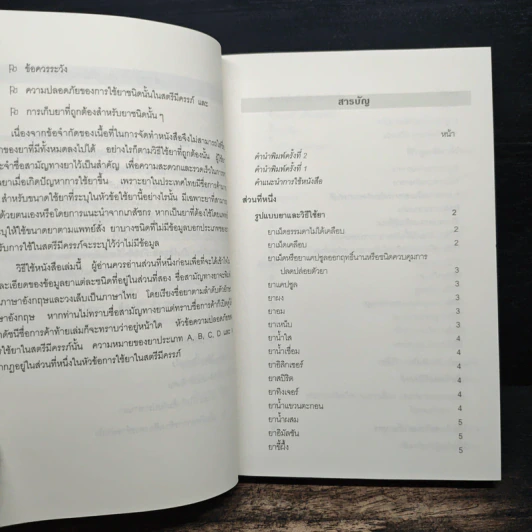 ข้อควรระวัง
ความปลอดภัยของการใช้ยาชนิดนั้นในสตรีมีครรภ์ และ
การเก็บยาที่ถูกต้องสำหรับยาชนิดนั้น ๆ
เนื่องจากข้อจำกัดของเนื้อที่ในการจัดทำหนังสือจึงไม่สามารถ
ของยาที่มีทั้งหมดลงไปได้ อย่างไรก็ตามวิธีใช้ยาที่ถูกต้องนั้น
จำชื่อสามัญทางยาไว้เป็นสำคัญ เพื่อความสะดวกและรวดเร็วในการ
ยาเมื่อเกิดปัญหาการใช้ยาขึ้น เพราะยาในประเทศไทยมีชื่อการค้า
สำหรับขนาดใช้ยาที่ระบุในหัวข้อใช้ยานี้อย่างไรนั้น มีเฉพาะยาที่สามารถ
ด้วยตนเองหรือโดยการแนะนำจากเภสัชกร หากเป็นยาที่ต้องใช้โดยแพทย์
ระบุให้ใช้ขนาดยาตามแพทย์สั่ง ยาบางชนิดที่ไม่มีข้อมูลบอกประเภทของ
รับการใช้ในสตรีมีครรภ์จะระบุไว้ว่าไม่มีข้อมูล
วิธีใช้หนังสือเล่มนี้ ผู้อ่านควรอ่านส่วนที่หนึ่งก่อนเพื่อที่จะได้เข้าใจ
ละเอียดของข้อมูลยาแต่ละชนิดที่อยู่ในส่วนที่สอง ชื่อสามัญทางยาจะพิมพ์
ภาษาอังกฤษและวงเล็บเป็นภาษาไทย โดยเรียงชื่อยาตามลำดับตัวอักษร
อังกฤษ หากท่านไม่ทราบชื่อสามัญทางยาแต่ทราบชื่อการค้าก็เปิดดู
ดัชนีชื่อการค้าท้ายเล่มก็จะทราบว่าอยู่หน้าใด หัวข้อความปลอดภัย
ใช้ยาในสตรีมีครรภ์นั้น ความหมายของยาประเภท A, B, C, D และ
กฏอยู่ในส่วนที่หนึ่งในหัวข้อการใช้ยาในสตรีมีครรภ์
สารบัญ
หน้า
คำนำพิมพ์ครั้งที่ 2
คำนำพิมพ์ครั้งที่ 1
คำแนะนำการใช้หนังสือ
ส่วนที่หนึ่ง
รูปแบบยาและวิธีใช้ยา 2
ยาเม็ดธรรมดาไม่ได้เคลือบ 2
ยาเม็ดเคลือบ 2
ยาเม็ดหรือยาแคปซูลออกฤทธิ์นานหรือชนิดควบคุมการ
ปลดปล่อยตัวยา 3
ยาแคปซูล 3
ยาผง 3
ยาอม 3
ยาเหน็บ 3
ยาน้ำใส 4
ยาน้ำเชื่อม 4
ยาอิลิกเซอร์ 4
ยาสปิริต 4
ยาทิงเจอร์ 4
ยาน้ำแขวนตะกอน 4
ยาน้ำผสม 4
ยาอิมัลชัน 5
ยาขี้ผึ้ง 5